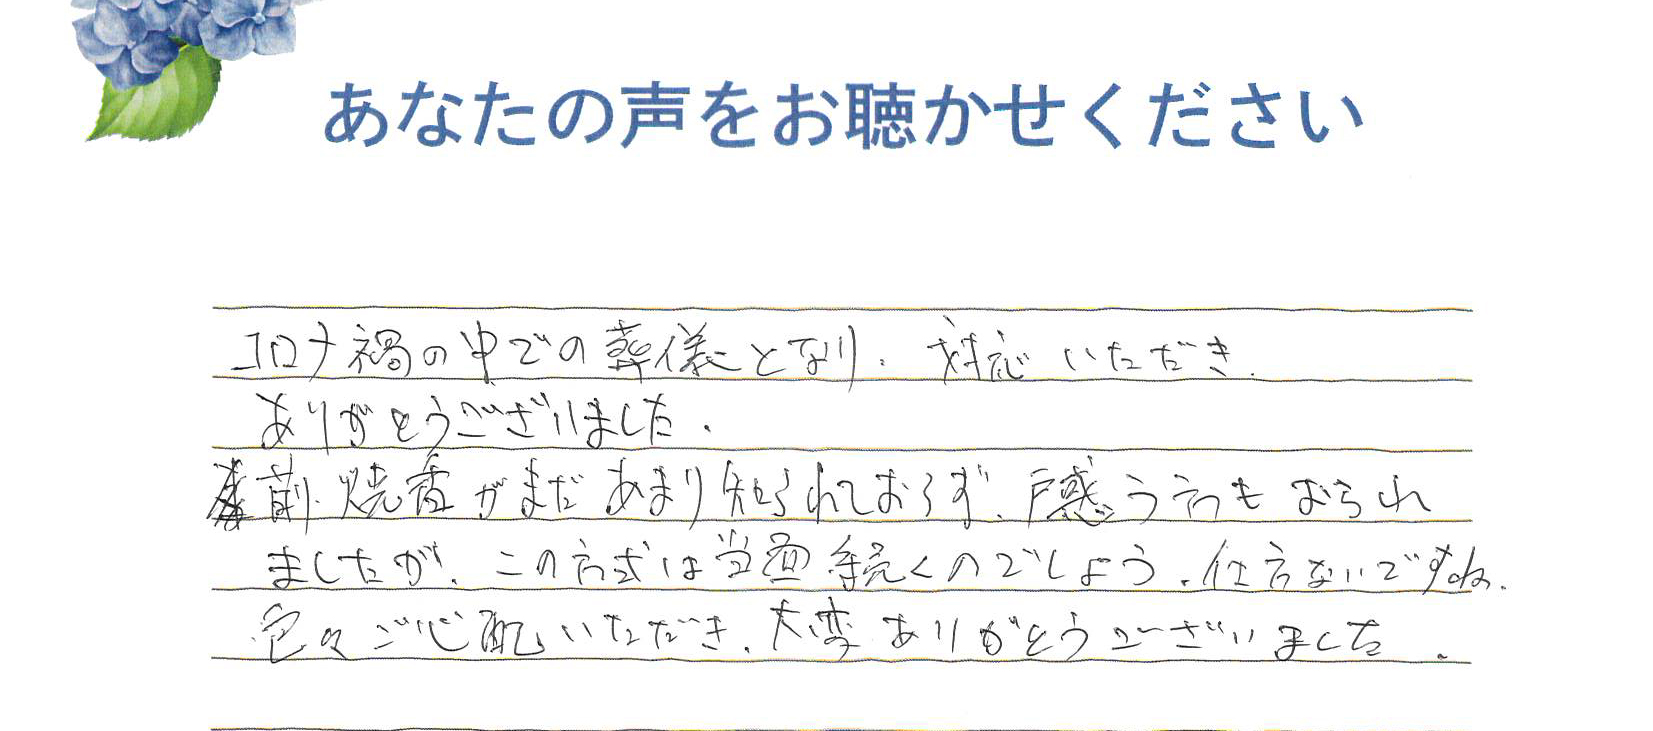 あなたの声をお聴かせください
コロナ禍の中での葬儀となり、対応いただき
ありがとうございました。
前焼香がまだあまり知られておらず、戸惑う方もおられ
ましたが、この方式は当面続くのでしょう。仕方ないですね。
色々ご心配いただき、大変ありがとうございました。